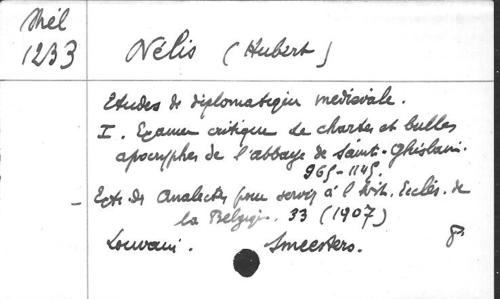 Mél
1233
Nélis (Hubert)
Etudes de diplomatique médiévale.
I. Examen critique de chartes et bulles
apocryphes de l'abbaye de Saint-Ghislain.
965-1145.
- Extr. des Analectes pour servir à l'hist. Ecclés. de
la Belgique. 33 (1907)
Louvain. Smeesters. 8°